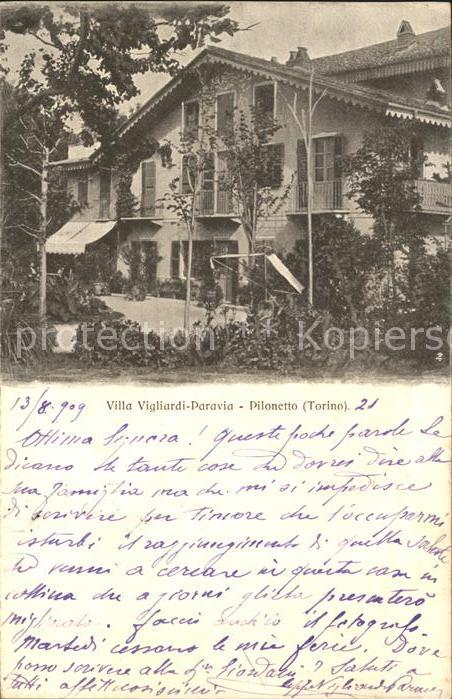 protection ** Kopiersc
2
13/8.909 Villa Vigliardi-Paravia - Pilonetto (Torino). 21
Ottima Signora! Queste poche parole Le
dicano le tante cose che dovrei dire alla
sua famiglia ma che mi si impedisce
di scrivere per timore che l'occuparmi
disturbi il raggiungimento di quella salute
che venni a cercare in questa casa in
collina che a giorni gliela presenterò
migliorata. Faccio anch'io il fotografo
Martedì cessano le mie ferie. Dove
posso scrivere alla Giordani? Saluti a
tutti affettuosissimi.